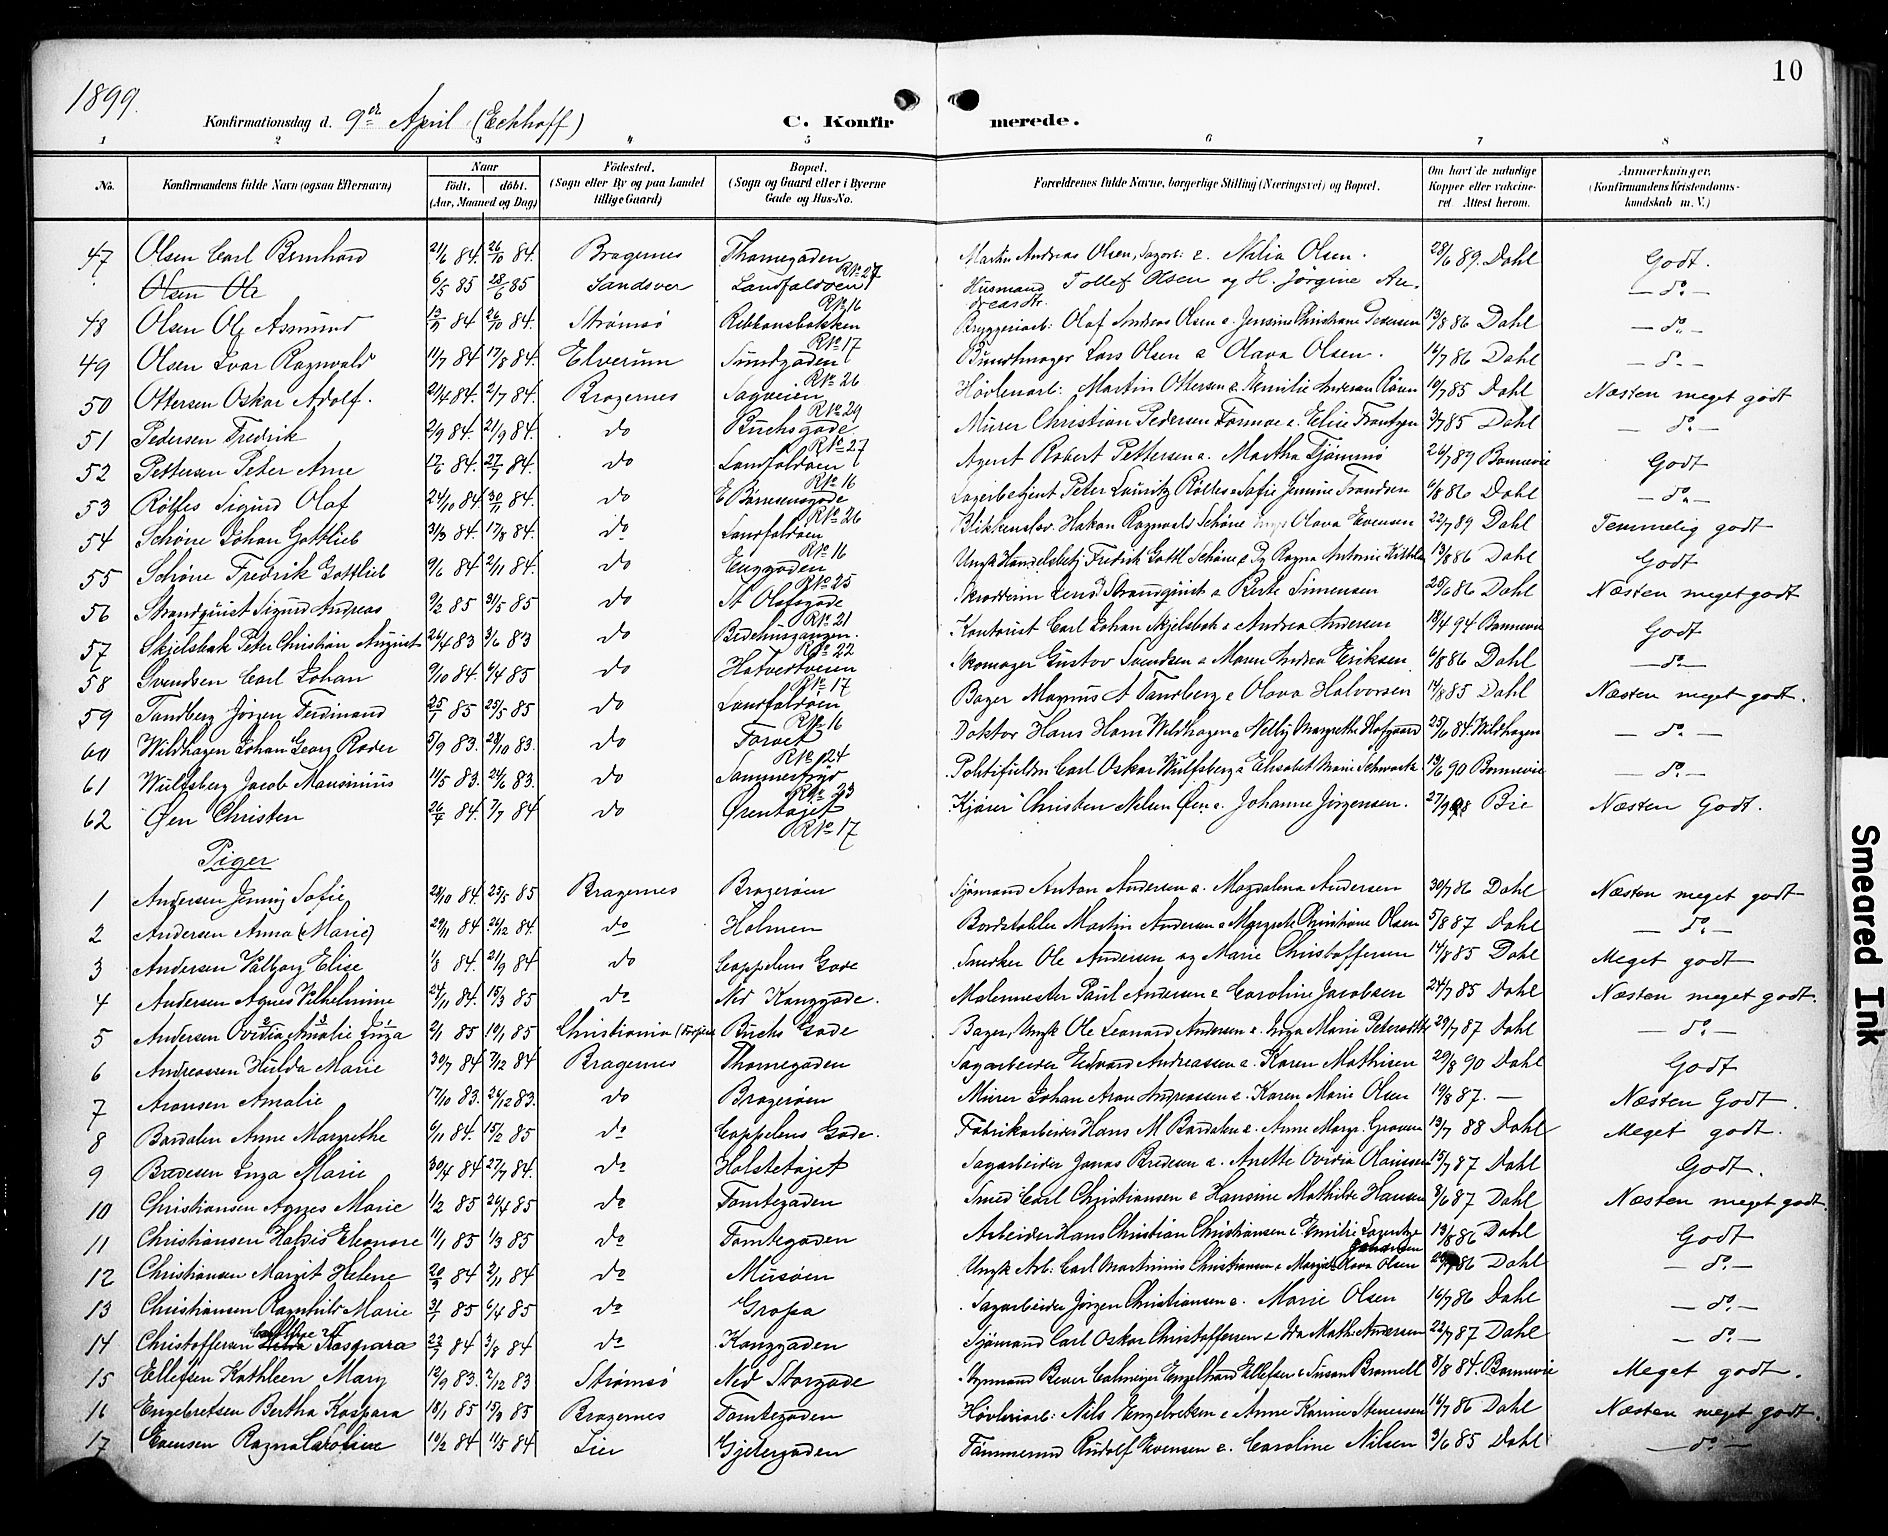 10
1899.
Konfirmationsdag d. 9de April (Eckhoff) C. Konfirmerede.
1 2 3 4 5 6 7 8
No. Konfirmandens fulde Navn (ogsaa Efternavn) Naar födt. döbt. (Aar, Maaned og Dag) Födested. (Sogn eller By og paa Landet tillige Gaard) Bopæl. (Sogn og Gaard eller i Byerne Gade og Hus-No. Forældrenes fulde Navne, borgerlige Stilling (Næringsvei) og Bopæl. Om havt de naturlige Kopper eller vakcineret Attest herom. Anmærkninger. (Konfirmandens Kristendomskundskab m. V.)
47 Olsen Carl Bernhard 21/6 84. 26/10 84. Bragernes Thomegaden Martin Andreas Olsen, Sagarb. & Nilia Olsen. 28/6 89. Dahl Godt.
Olsen Ole 6/5 85 28/6 85 Sandsver Landfaldøen R No 27 Husmand Tollef Olsen og H. Jørgine Andreasdtr. — do —
48 Olsen Ole Asmund 13/9 84 26/10 84. Strømsø Ribbansbakken R No 16 Bryggeriarb: Olaf Andreas Olsen & Jensine Christiane Pedersen 13/8 86 Dahl — do —
49 Olsen Ivar Ragnvald 11/7 84 17/8 84. Elverum Sundgaden R No 17 Bundtmager Lars Olsen & Olava Olsen. 16/7 86 Dahl — do —
50 Ottersen Oskar Adolf. 21/4 84. 2/7 84. Bragernes Sagveien R No 26 Høvlenarb: Martin Ottersen & Emilie Andersen 10/7 85 Dahl Næsten meget godt
51 Pedersen Fredrik 2/9 84. 21/9 84. do Buchsgade R No 29 Murer Christian Pedersen Formoe & Elise Frantzen 3/7 85 Dahl — do —
52 Pettersen Peter Arne 17/6 84. 27/7 84. do Landfaldøen R No 27 Agent Robert Pettersen & Martha Tjømmø 26/7 89 Bonnevie Godt
53 Rølfes Sigurd Olaf 24/10 84 30/11 84. do E. Børresensgade R No 16 Lagerbetjent Peter Lauritz Rølles & Sofie Jensine Frandsen 6/8 86 Dahl — do —
54 Schøne Johan Gottlieb 31/3 84. 17/8 84. do Landfaldøen R No 26 Blikkenslar. Hakon Ragnvald Schøne Olava Evensen 22/7 89 Dahl Temmelig godt
55 Schøne Fredrik Gottlieb 9/6 84 2/11 84. do Enggaden R No 16 Ungk Handelsbetj Fredrik Gottl Schøne & Pg Ragna Antonie 13/8 86 Dahl Godt
56 Strandquist Sigurd Andreas 9/2 85 31/5 85 do St Olafsgade R No 25 Strandquist & Berte Simensen 25/6 86 Dahl Næsten meget godt
57 Skjelsbæk Peter Christian August 26/4 83 3/6 83 do Bedehusgangen. R No 21 Kontorist Carl Johan Skjelsbæk & Andrea Andersen 18/4 94 Bonnevie Godt
58 Svendsen Carl Johan 9/10 84. 6/4 85 do Hotvedtveien R No 22 Skomager Gustav Svendsen & Maren Andrea Eriksen 6/8 86 Dahl — do —
59 Tandberg Jörgen Ferdinand 25/1 85 25/5 85 do Landfaldøen R No 17 Bager Magnus A Tandberg & Olava Halvorsen 14/8 85 Dahl Næsten meget godt.
60 Wildhagen Johan Georg Roder 5/9 83. 28/10 83. do Torvet R No 16 Doktor Hans Horn Wildhagen & Nelly Margrethe Hofgaard 25/6 84. Wildhagen — do —
61 Wulfsberg Jacob Mausinius 11/5 83. 24/6 83. do Sommerfryd R No 24 Politifuldm Carl Oskar Wulfsberg & Elisabet Marie Schwartz 13/6 90 Bonnevie — do —
62 Øen Christen 26/4 84. 7/7 84 do Ørentøjet R No 23 Kjører Christen Nilsen Øen & Johanne Jørgensen. 27/9 98 Bie Næsten Godt.
R No 17
Piger
1 Andersen Jenny Sofie 28/10 84. 25/5 85 Bragernes Bragerøen Sjømand Anton Andersen & Magdalena Andersen 30/7 86 Dahl Næsten meget godt
2 Andersen Anna (Marie) 29/11 84 26/12 84. do Holmen Bordstabler Martin Andersen & Margrete Christiane Olsen 5/8 87 Dahl — do —
3 Andersen Valborg Elise 1/8 84. 21/9 84 do Cappelens Gade Snedker Ole Andersen og Marie Christoffersen 14/8 85 Dahl Meget godt
4 Andersen Agnes Vilhelmine 24/11 84. 15/3 85 do Ned Kanggade. Malermester Paul Andersen & Caroline Jacobsen 24/7 85 Dahl Næsten meget godt.
5 Andersen Ovidia Amalie Inga 2/1 85 19/1 85 Christiania Buchs Gade Bager, Ungk Ole Leonard Andersen & Inga Marie Petersdtr 29/7 87 Dahl — do —
6 Andreassen Hulda Marie 30/7 84 7/12 84 Bragernes Thomegaden Sagarbeider Edvard Andreassen & Karen Mathisen 29/8 90 Dahl Godt
7 Aronsen Amalie 17/10 83. 26/12 83. do Bragerøen Murer Johan Aron Andreassen & Karen Marie Olsen 19/8 87. — Næsten Godt.
8 Bardalen Anne Margrethe 6/11 84. 15/2 85 do Cappelens Gade. Fabrikarbeider Hans M Bardalen & Anne Margr. Graven 13/7 88 Dahl Meget godt.
9 Bredesen Inga Marie 30/4 84 27/7 84. do Holstetøjet Sagarbeider Jonas Bredesen & Anette Ovidia Olaussen 15/7 87 Dahl Godt.
10 Christiansen Agnes Marie 1/2 85 26/4 85 do Tomtegaden Smed Carl Christiansen & Hansine Mathilde Hansen 8/6 87 Dahl Næsten meget godt.
11 Christiansen Haldis Eleonore 11/1 85 1/3 85 do Tomtegaden Arbeider Hans Christian Christiansen & Emilie Johansen 13/8 86 Dahl Godt
12 Christiansen Margit Helene 20/9 84 2/11 84 do Musøen Ungk Arb: Carl Martinius Christiansen & Olava Olsen 86 Dahl — do —
13 Christiansen Ragnhild Marie 31/1 85 6/4 85 do Gropa Sagarbeider Jørgen Christiansen & Marie Olsen 16/7 86 Dahl — do —
14 Christoffersen Kaspara 23/1 84 3/8 84 do Kanggaden Sjømand Carl Oskar Christoffersen & Ida Math. Andersen 22/7 87 Dahl — do —
15 Ellefsen Kathleen Mary 12/9 83. 2/12 83 Strømsø Ned Storgade Styrmand Bever Colmeijer Engelhard Ellefsen & Susan Bramell 8/8 84. Bonnevie Meget godt.
16 Engebretsen Bertha Kaspara 18/1 85 15/3 85 Bragernes Tomtegaden Høvleriarb: Nils Engebretsen & Anne Karine Stenersen 16/7 86 Dahl Næsten meget godt.
17 Evensen Ragna Caroline 10/2 84 11/5 84 Lier Gjetergaden Tømmermd Rudolf Evensen & Caroline Nilsen 3/6 85 Dahl — do —
Smeared Ink